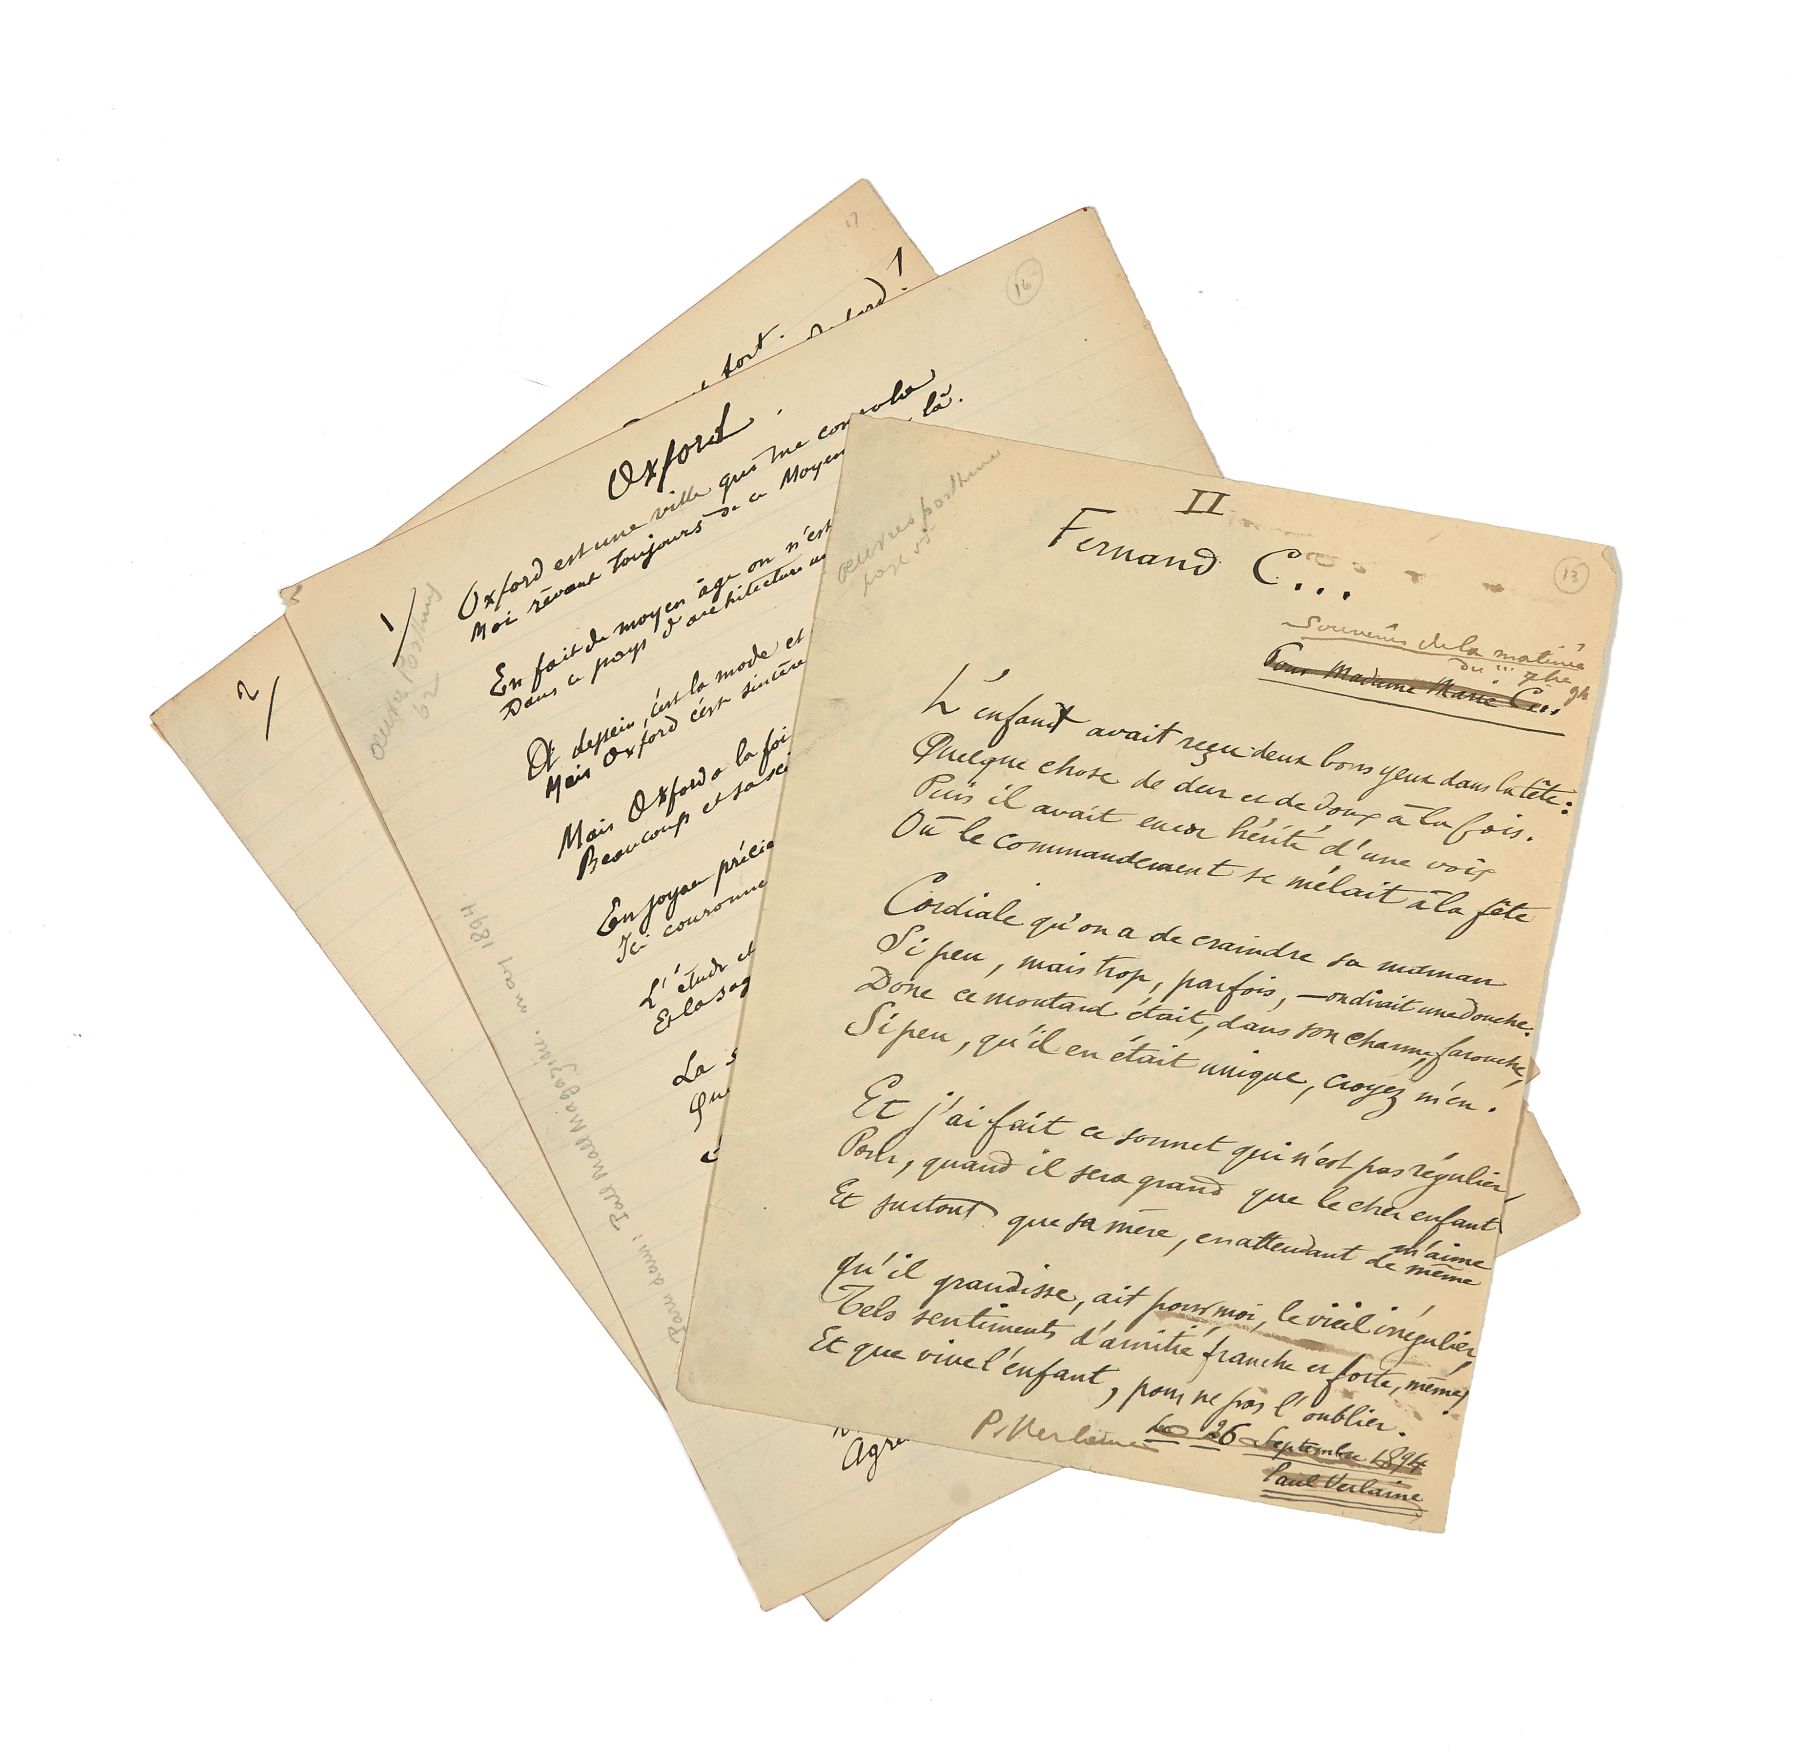 17
tort.
16
Oxford.
1/
Oxford est une ville qui me consola
Moi rêvant toujours de ce Moyen là.
En fait de moyen âge on n'est
Dans ce pays d'architecture
A dessein, c'est la mode et
Mais Oxford c'est sincère
Mais Oxford a la foi
Beaucoup et sa
En joyau précie
Ici couronne
L'étude et
Et la sag
La s
Que
Agré
Œuvres Posthumes
62
Paru dans : Pall Mall Magazine. mars 1894.
2/
Œuvres posthumes
page
II
Fernand C...
13
Souvenirs de la matinée
du ... 7bre 94
Pour Madame Marie C...
L'enfant avait reçu deux bons yeux dans la tête:
Quelque chose de dur et de doux à la fois.
Puis il avait encor hérité d'une voix
Où le commandement se mêlait à la fête
Cordiale qu'on a de craindre sa maman
Si peu, mais trop, parfois, — on dirait une douche.
Donc ce moutard était, dans son charme, farouche,
Si peu, qu'il en était unique, croyez m'en.
Et j'ai fait ce sonnet qui n'est pas régulier,
Pour, quand il sera grand que le cher enfant
m'aime
Et surtout que sa mère, en attendant de même
Qu'il grandisse, ait pour moi, le vieil irrégulier,
Tels sentiments d'amitié franche et forte, même,
Et que vive l'enfant, pour ne pas l'oublier.
P. Verlaine
Le 26 Septembre 1894
Paul Verlaine